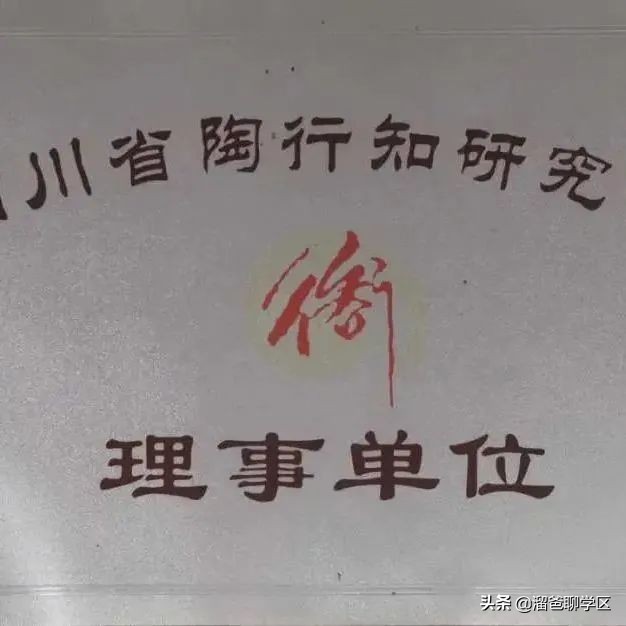 川省陶行知研究
理事单位
头条 @溜爸聊学区